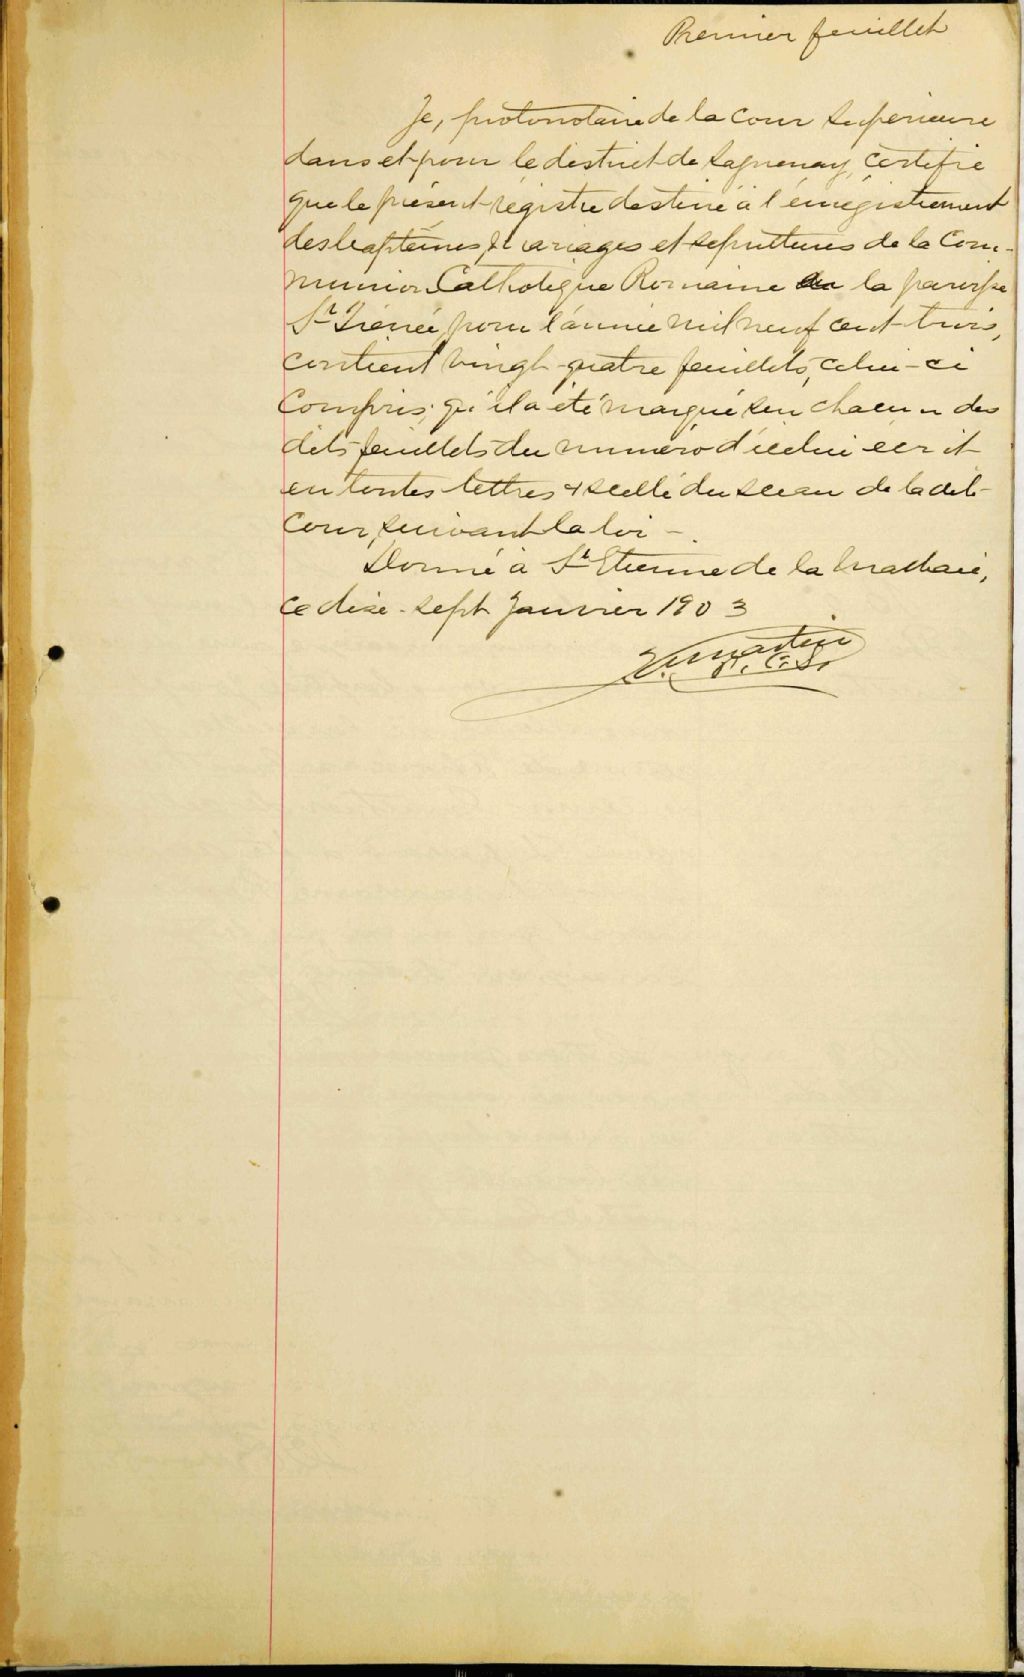 Premier feuillet
Je, protonotaire de la Cour Supérieure
dans et pour le district de Saguenay, certifie
que le présent régistre destiné à l'énrégistrement
des baptêmes, mariages et sépultures de la Com-
munion Catholique Romaine de la paroisse
St Irénée, pour l'année mil neuf cent-trois,
contient vingt-quatre feuillets, celui-ci
compris; qu'il a été marqué sur chacun des
dits feuillets du numéro d'icelui écrit
en toutes lettres & scellé du sceau de la dite
Cour, suivant la loi -.
Donné à St Etienne de la Malbaie,
ce dix-sept Janvier 1903
Martin
P. C. S.